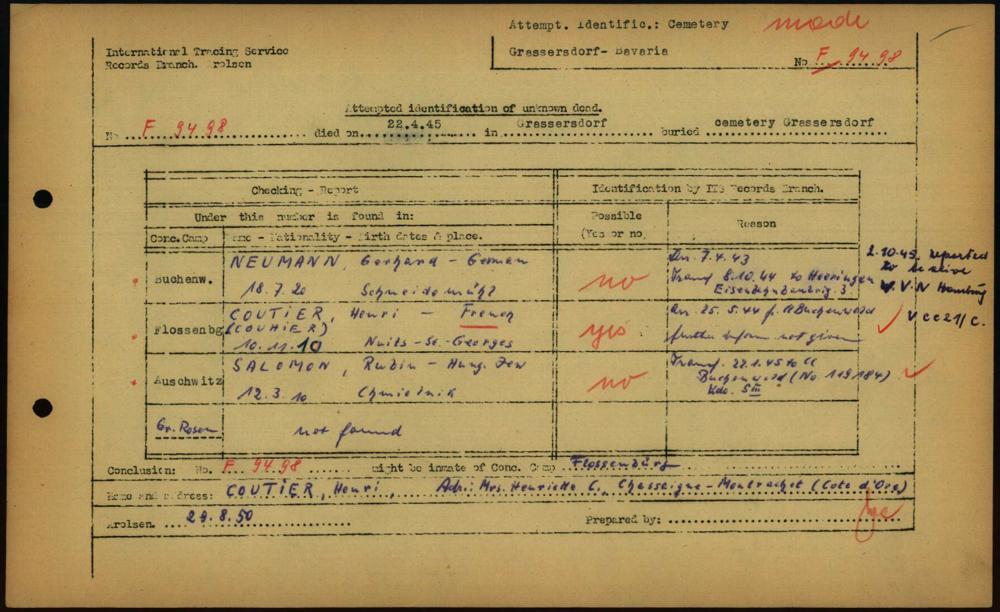 Attempt. Identific.: Cemetery made
Grassersdorf- Bavaria
No F. 94 98
International Tracing Service
Records Branch. Arolsen
Attempted identification of unknown dead.
No F 94 98 died on 22.4.45 in Grassersdorf buried cemetery Grassersdorf
Checking - Report Identification by ITS Records Branch.
Under this number is found in: Possible (Yes or no) Reason
Conc.Camp Name - Nationality - Birth dates & place.
Buchenw. NEUMANN, Gerhard - German no Arr. 7.4.43
18.7.20 Schneidemühl Transf 8.10.44 to Heeringen
Eisenbahnbaubrig. 3
2.10.45 reported
to be alive
V.V.N Hamburg
Flossenbg COUTIER, Henri - French yes Arr. 25.5.44 f. Buchenwald V cc21/c.
(COUHIER)
10.11.10 Nuits-St.-Georges further inform not given
Auschwitz SALOMON, Rubin - Hung. Jew no Transf. 22.1.45 to CC
12.3.10 Chmielnik Buchenwald (No. 119184)
Kdo. SIII
Gr. Rosen not found
Conclusion: No. F 94 98 might be inmate of Conc. Camp Flossenbürg
Name and address: COUTIER, Henri, Adr: Mrs. Henriette C., Chassaigne-Montrachet (Cote d'Ore)
Arolsen. 29.8.50 Prepared by: